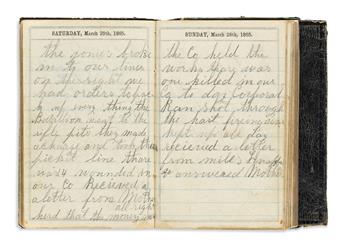 SATURDAY, March 25th, 1865.
the yonie's broke
in th our line
on the right we
had orders to pac
k up every thing the
Battalion went to the
rifle pits they made
a charge and took the
picket line thare
was 4 wounded in
our Co Received a
a letter from Mother
all right
herd that the money was
SUNDAY, March 26th, 1865.
the Co held the
works thay was
one killed in our
Co to day Corporal
shot through
the hart fireing was
kept up all day
recieved a letter
from miles
& answeared Mother